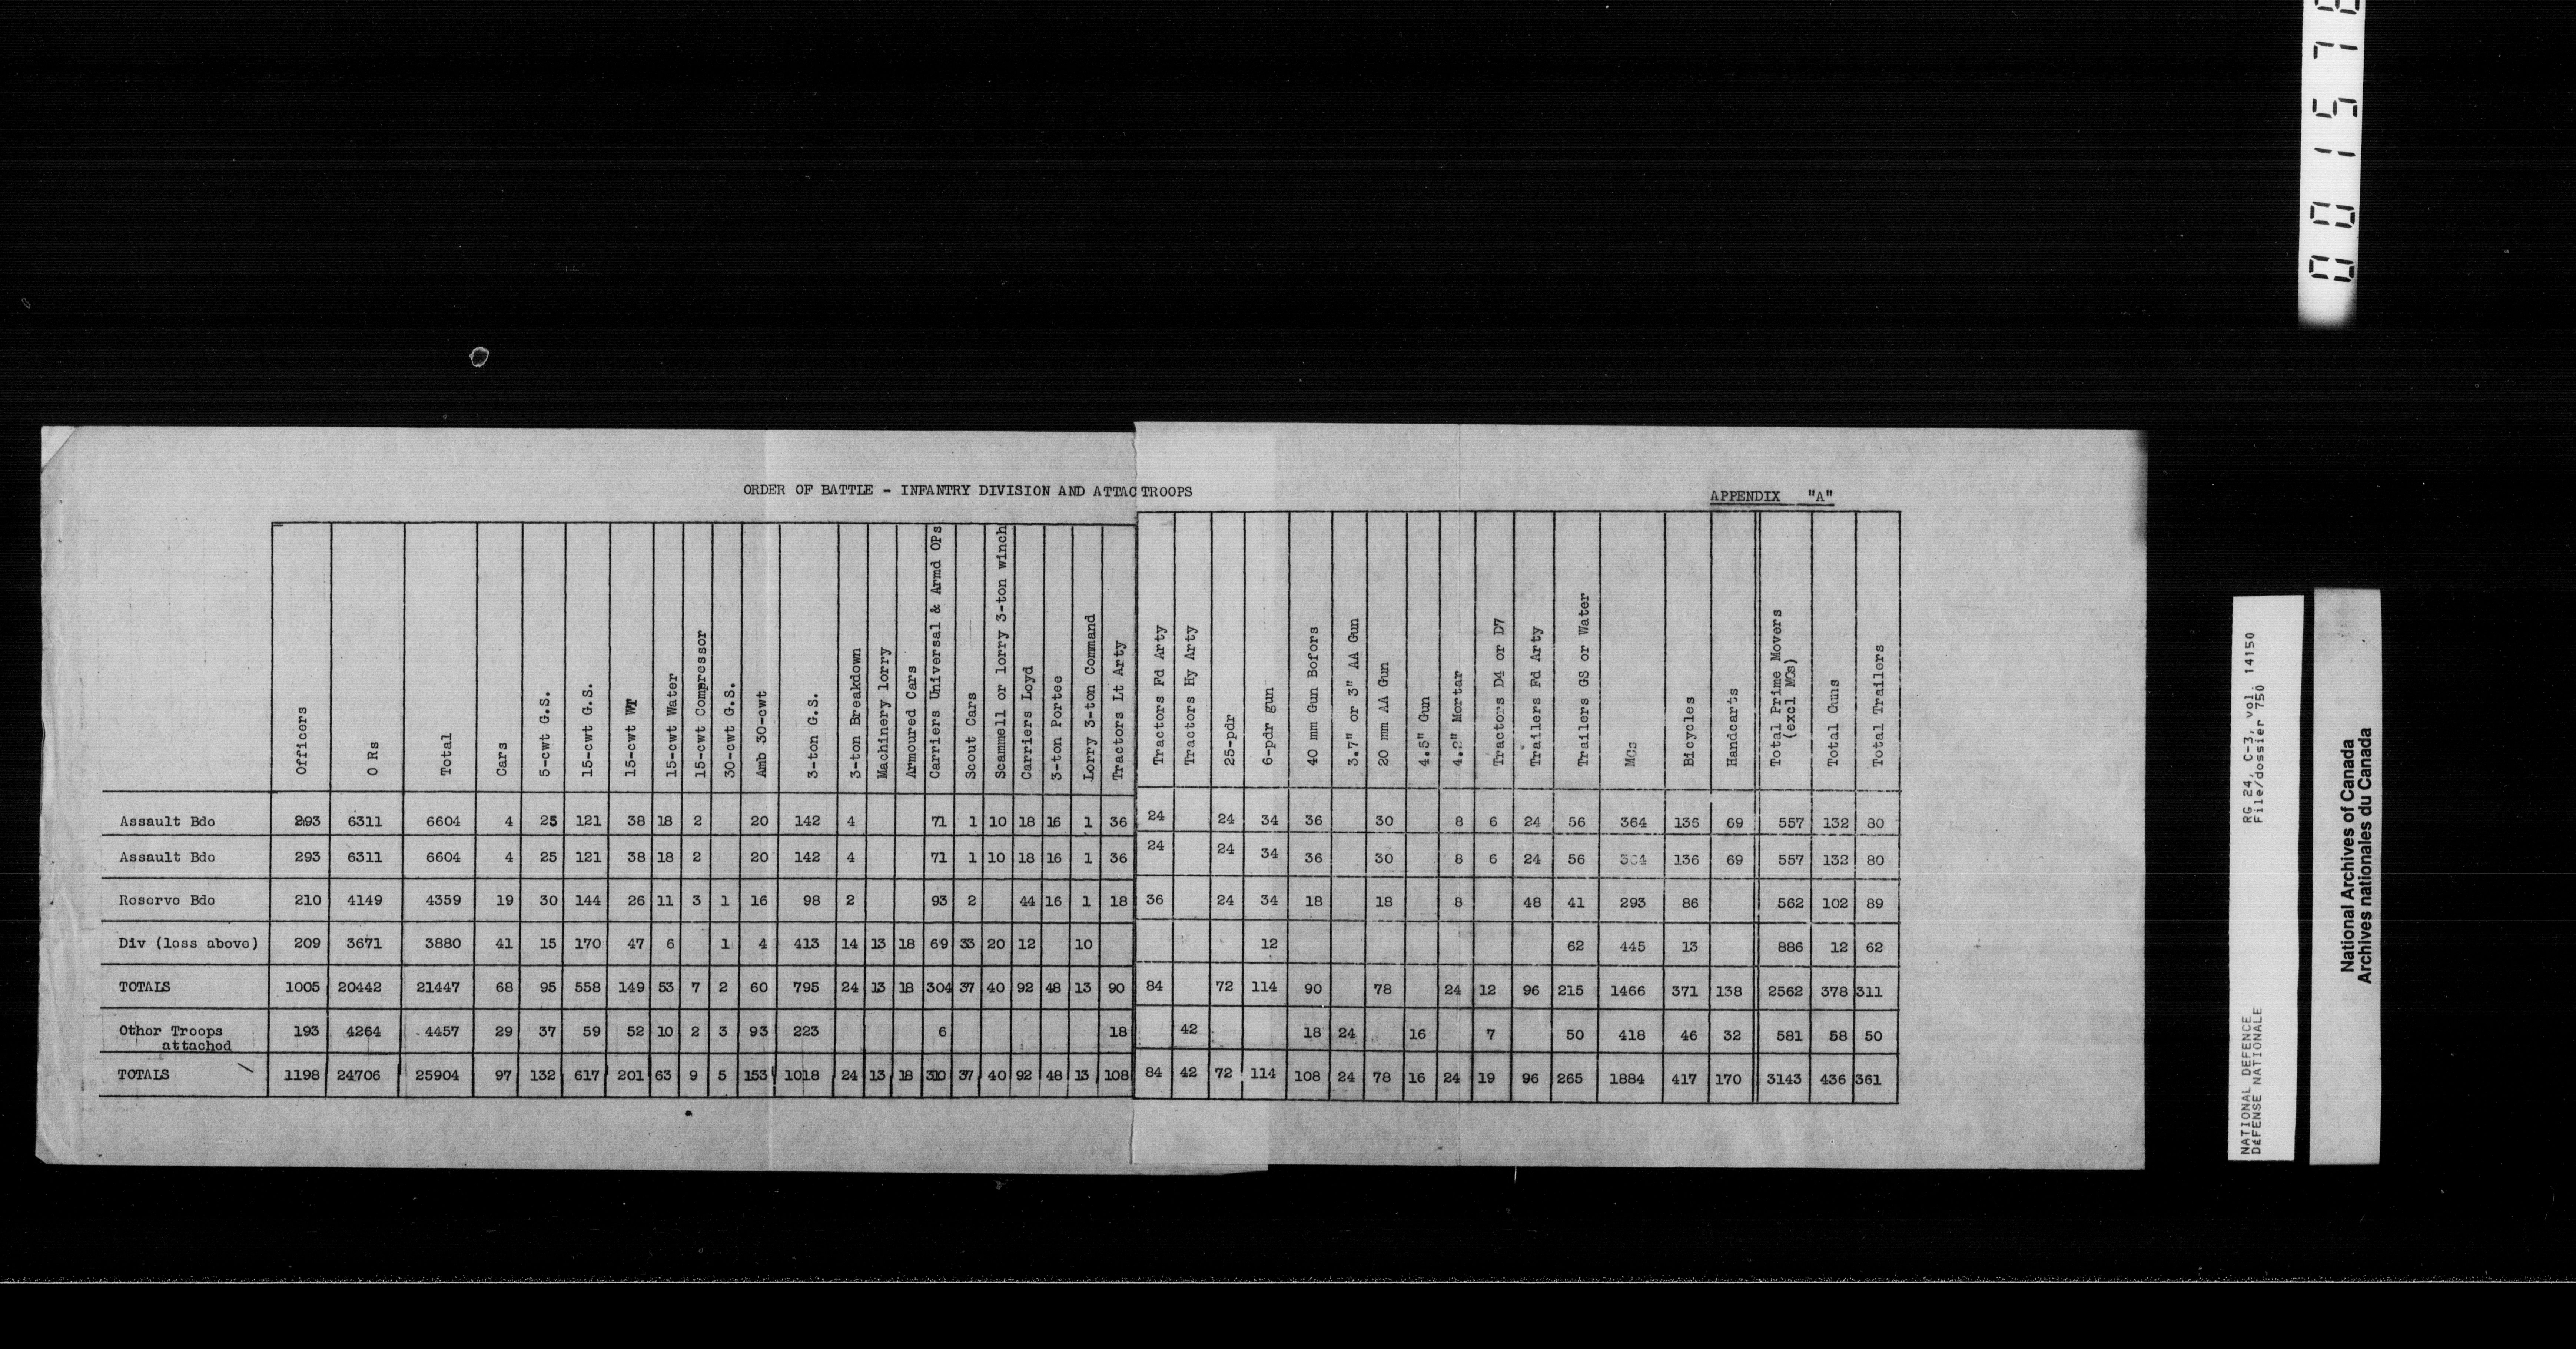 001578
ORDER OF BATTLE - INFANTRY DIVISION AND ATTAC TROOPS
APPENDIX "A"
Officers
O Rs
Total
Cars
5-cwt G.S.
15-cwt G.S.
15-cwt WT
15-cwt Water
15-cwt Compressor
30-cwt G.S.
Amb 30-cwt
3-ton G.S.
3-ton Breakdown
Machinery lorry
Armoured Cars
Carriers Universal & Armd OPs
Scout Cars
Scammell or lorry 3-ton winch
Carriers Loyd
3-ton Portee
Lorry 3-ton Command
Tractors Lt Arty
Tractors Fd Arty
Tractors Hy Arty
25-pdr
6-pdr gun
40 mm Gun Bofors
3.7" or 3" AA Gun
20 mm AA Gun
4.5" Gun
4.2" Mortar
Tractors D4 or D7
Trailers Fd Arty
Trailers GS or Water
MCs
Bicycles
Handcarts
Total Prime Movers
(excl MCs)
Total Guns
Total Trailers
Assault Bde 293 6311 6604 4 25 121 38 18 2 20 142 4 71 1 10 18 16 1 36 24 24 34 36 30 8 6 24 56 364 136 69 557 132 80
Assault Bde 293 6311 6604 4 25 121 38 18 2 20 142 4 71 1 10 18 16 1 36 24 24 34 36 30 8 6 24 56 364 136 69 557 132 80
Reserve Bde 210 4149 4359 19 30 144 26 11 3 1 16 98 2 93 2 44 16 1 18 36 24 34 18 18 8 48 41 293 86 562 102 89
Div (less above) 209 3671 3880 41 15 170 47 6 1 4 413 14 13 18 69 33 20 12 10 12 62 445 13 886 12 62
TOTALS 1005 20442 21447 68 95 558 149 53 7 2 60 795 24 13 18 304 37 40 92 48 13 90 84 72 114 90 78 24 12 96 215 1466 371 138 2562 378 311
Other Troops 193 4264 4457 29 37 59 52 10 2 3 93 223 6 18 42 18 24 16 7 50 418 46 32 581 58 50
attached
TOTALS 1198 24706 25904 97 132 617 201 63 9 5 153 1018 24 13 18 310 37 40 92 48 13 108 84 42 72 114 108 24 78 16 24 19 96 265 1884 417 170 3143 436 361
NATIONAL DEFENCE RG 24, C-3, vol. 14150
DÉFENSE NATIONALE File/dossier 750
National Archives of Canada
Archives nationales du Canada